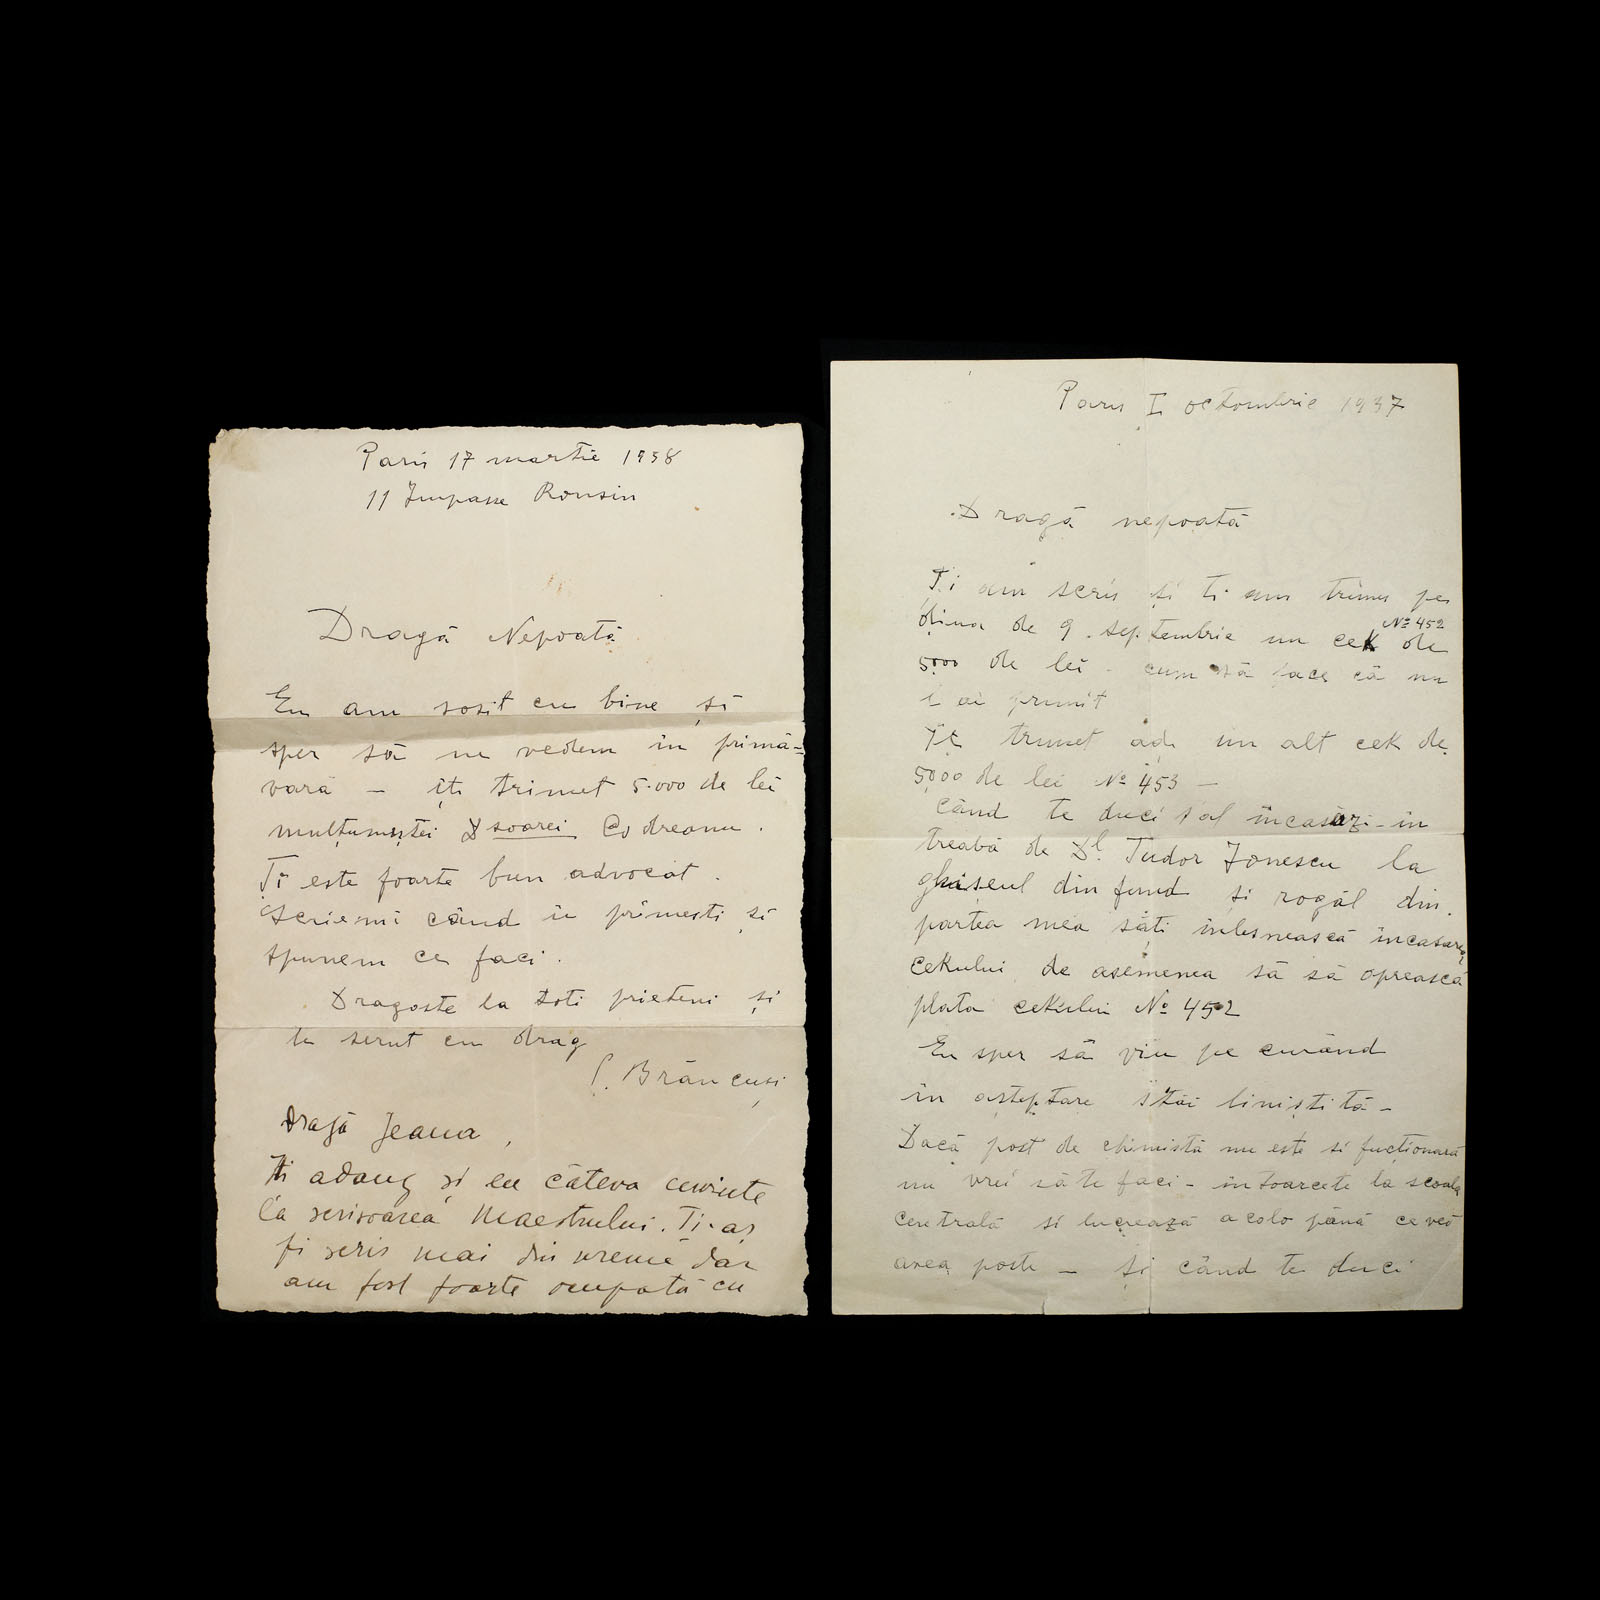 Paris 17 martie 1938
11 Impasse Ronsin
Dragă Nepoată
Eu am sosit cu bine și
sper să ne vedem în primă-
vară – iți trimet 5.000 de lei
mulțumește D soarei Codreanu.
Ți este foarte bun advocat.
Scriemi când ii primești și
spunem ce faci.
Dragoste la toti prieteni și
te serut cu drag
C. Brâncuși
Dragă Jeana,
Iti adaug și eu câteva cuvinte
la scrisoarea Maestrului. Ti-aș
fi scris mai din vreme dar
am fost foarte ocupată cu
Paris I octombrie 1937
Dragă nepoată
Ți am scris și ti am trimes pe
diua de 9 septembrie un cek No 452 de
5000 de lei – cum să face că nu
l ai primit
Iți trimet ad un alt cek de
5000 de lei No 453 –
Când te duci sal încasăzi – in
treabă de Dl. Tudor Ionescu la
ghișeul din fund și rogăl din
partea mea săți inlesnească încasarea
cekului, de asemenea să să oprească
plata cekului No 452
Eu sper să viu pe curând
în așteptare stăi liniștită –
Dacă post de chimistă nu este si fucționară
nu vrei să te faci – intoarcete la scoala
centrală si lucrează acolo până ce vei
avea poste – Și când te duci